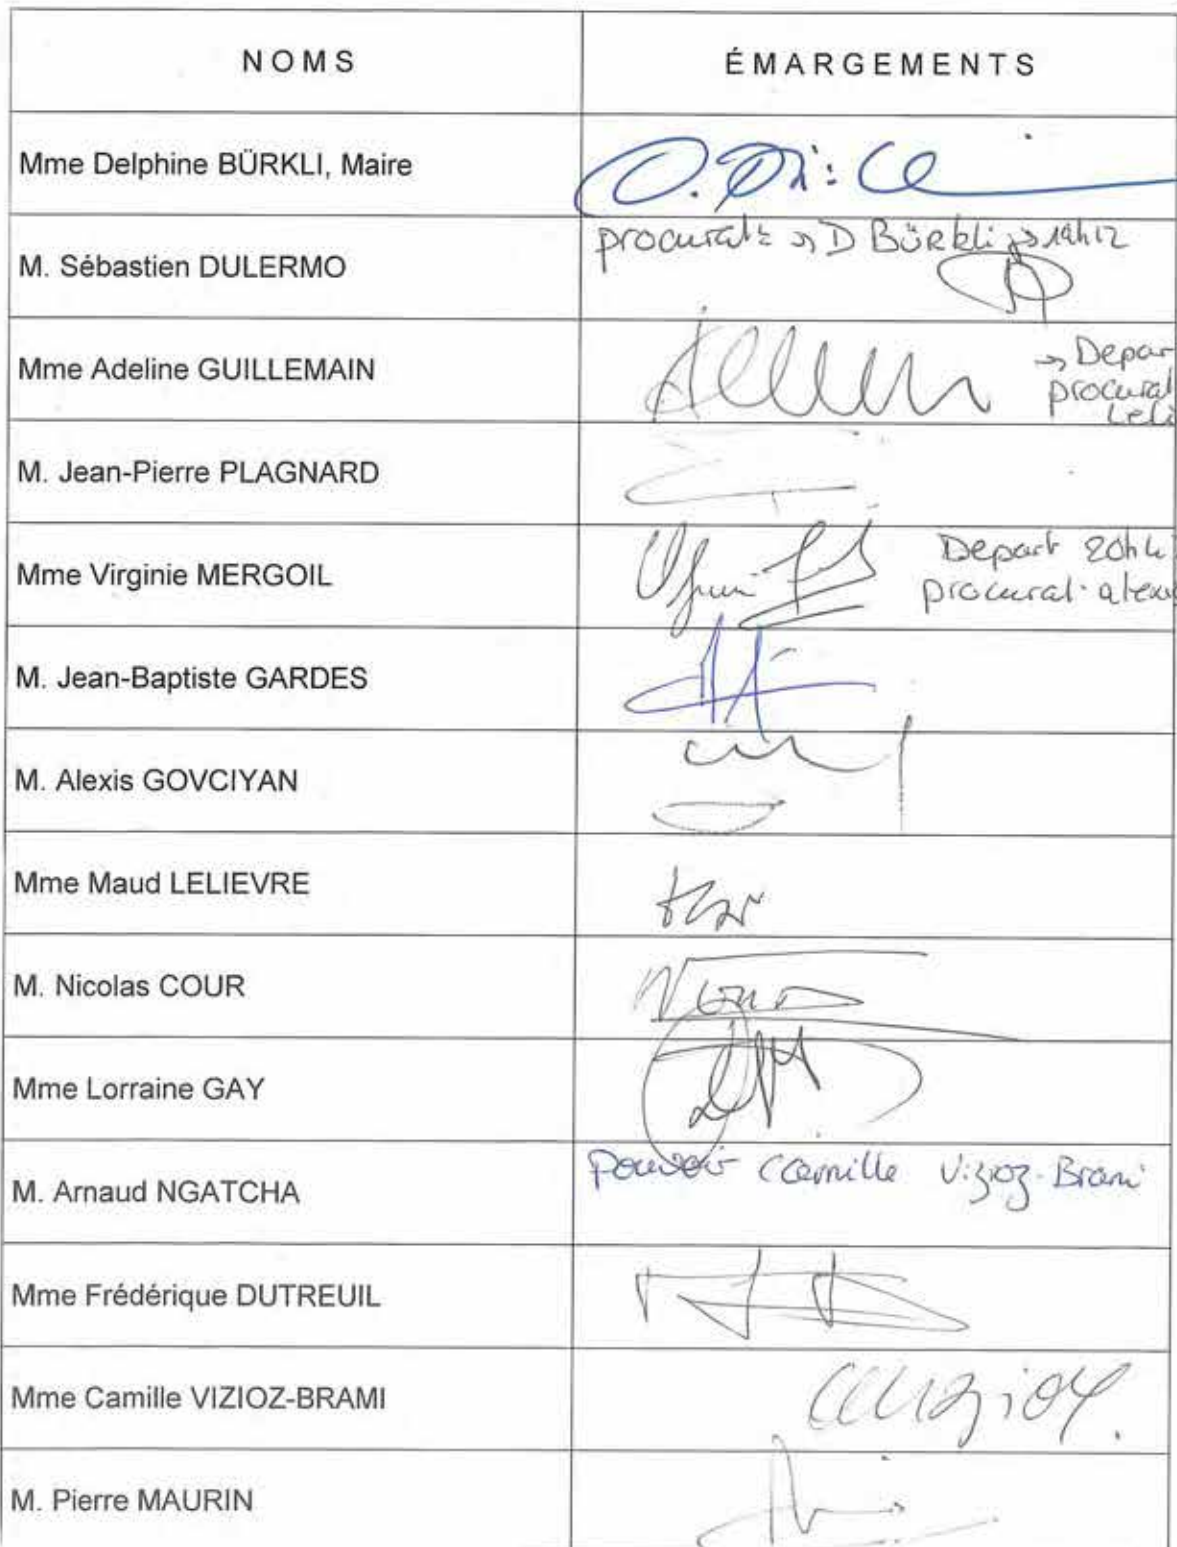 NOMS ÉMARGEMENTS
Mme Delphine BÜRKLI, Maire
M. Sébastien DULERMO procurat° → D Bürkli → 19h12
Mme Adeline GUILLEMAIN → Depar
procurat
Leli
M. Jean-Pierre PLAGNARD
Mme Virginie MERGOIL Depart 20h4
procurat° alexi
M. Jean-Baptiste GARDES
M. Alexis GOVCIYAN
Mme Maud LELIEVRE
M. Nicolas COUR
Mme Lorraine GAY
M. Arnaud NGATCHA Pouvoir Camille Vizioz-Brami
Mme Frédérique DUTREUIL
Mme Camille VIZIOZ-BRAMI
M. Pierre MAURIN